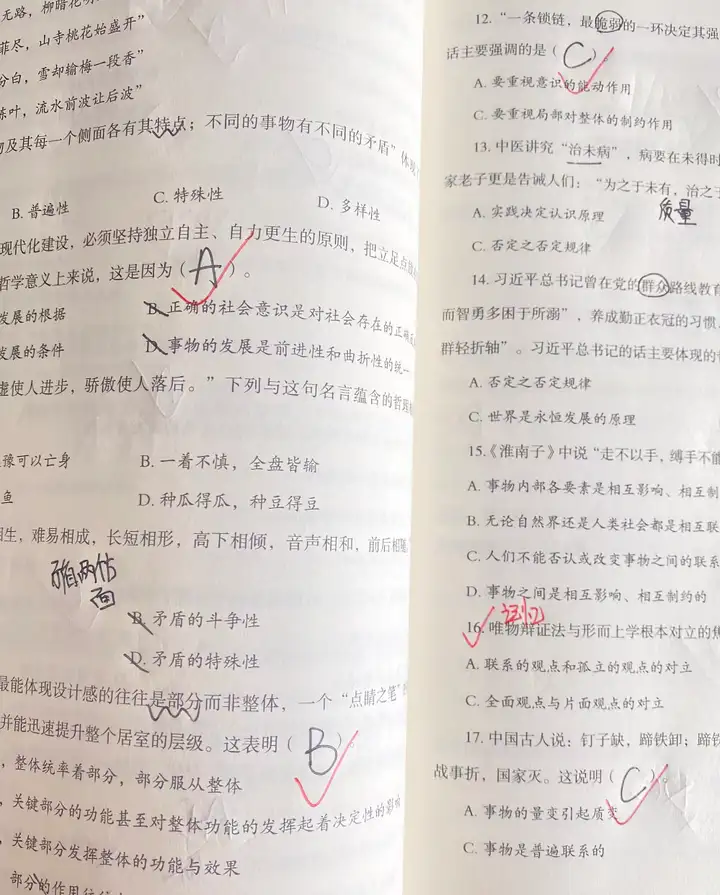 无路，柳暗花明
菲尽，山寺桃花始盛开”
分白，雪却输梅一段香”
陈叶，流水前波让后波”
物及其每一个侧面各有其特点；不同的事物有不同的矛盾”体现
B. 普遍性
C. 特殊性
D. 多样性
现代化建设，必须坚持独立自主、自力更生的原则，把立足点放
哲学意义上来说，这是因为（A）。
发展的根据
B. 正确的社会意识是对社会存在的正确
发展的条件
D. 事物的发展是前进性和曲折性的统一
虚使人进步，骄傲使人落后。”下列与这句名言蕴含的哲
豫可以亡身
B. 一着不慎，全盘皆输
鱼
D. 种瓜得瓜，种豆得豆
相生，难易相成，长短相形，高下相倾，音声相和，前后相随
面
B. 矛盾的斗争性
D. 矛盾的特殊性
最能体现设计感的往往是部分而非整体，一个“点睛之笔”
并能迅速提升整个居室的层级。这表明（B）。
，整体统率着部分，部分服从整体
，关键部分的功能甚至对整体功能的发挥起着决定性的影响
，关键部分发挥整体的功能与效果
部分的作用往往
12. “一条锁链，最脆弱的一环决定其强
话主要强调的是（C）。
A. 要重视意识的能动作用
C. 要重视局部对整体的制约作用
13. 中医讲究“治未病”，病要在未得时
家老子更是告诫人们：“为之于未有，治之于
A. 实践决定认识原理
质量
C. 否定之否定规律
14. 习近平总书记曾在党的群众路线教育
而智勇多困于所溺”，养成勤正衣冠的习惯，
群轻折轴”。习近平总书记的话主要体现的哲
A. 否定之否定规律
C. 世界是永恒发展的原理
15.《淮南子》中说“走不以手，缚手不能
A. 事物内部各要素是相互影响、相互制
B. 无论自然界还是人类社会都是相互联
C. 人们不能否认或改变事物之间的联系
D. 事物之间是相互影响、相互制约的
记忆
16. 唯物辩证法与形而上学根本对立的焦
A. 联系的观点和孤立的观点的对立
C. 全面观点与片面观点的对立
17. 中国古人说：钉子缺，蹄铁卸；蹄铁
战事折，国家灭。这说明（C）。
A. 事物的量变引起质变
C. 事物是普遍联系的